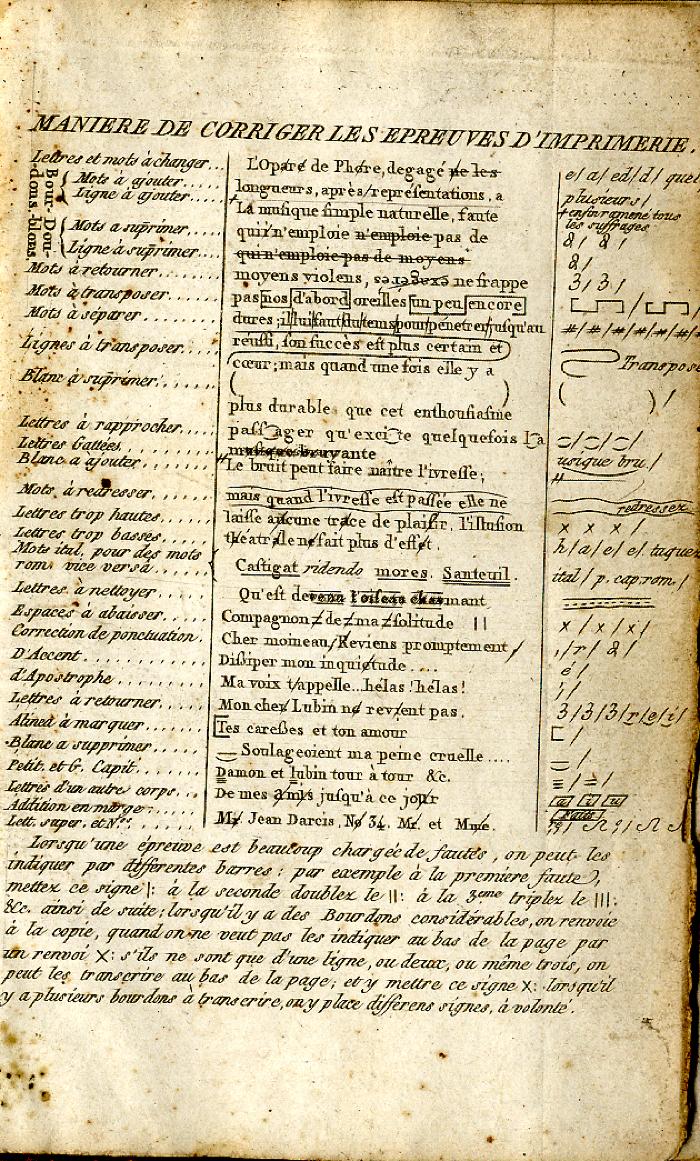 MANIERE DE CORRIGER LES EPREUVES D'IMPRIMERIE.
Lettres et mots à changer... L'Opéré de Phére, degagé ne les e/ a/ ed/ d/ quel
Mots à ajouter..... longueurs, après/représentations, a plusieurs/
Ligne à ajouter..... La musique simple naturelle, faute + enfin ramené tous les suffrages
Bour- Dou-
dons. blons.
Mots à suprimer..... qui n'emploie n'emploie pas de
Ligne à suprimer..... qui n'emploie pas de moyens
Mots à retourner....... moyens violens, ne frappe 3/ 3/
Mots à transposer....... pas nos d'abord oreilles un peu encore
Mots à séparer........ dures ; il lui faut du tems pour pénetrer jusqu'au #/#/#/#/#/#
Lignes à transposer..... reussi, son succès est plus certain et
cœur; mais quand une fois elle y a Transpose
Blanc à suprimer.......
plus durable que cet enthousiasme
Lettres à rapprocher...... passager qu'excite quelquefois la
Lettres Gattées......... musique bruyante usique bru/
Blanc a ajouter......... Le bruit peut faire naître l'ivresse; #
Mots à redresser....... mais quand l'ivresse est passée elle ne redressez
Lettres trop hautes...... laisse aucune trace de plaisir. l'illusion x x x /
Lettres trop basses...... theatrale ne fait plus d'effet.
Mots ital. pour des mots
rom. vice versâ...... Castigat ridendo mores. Santeuil. ital/ p. cap. rom./
Lettres à nettoyer...... Qu'est devenu l'oiseau charmant
Espaces à abaisser...... Compagnon de ma solitude || x/ x/ x/
Correction de ponctuation. Cher moineau/Reviens promptement/ ,/ r/ &/
D'Accent............ Dissiper mon inquiétude .... é/
d'Apostrophe......... Ma voix t/appelle...hélas! hélas! '/
Lettres à retourner...... Mon cher Lubin ne revient pas. 3/3/3/r/e/i/
Alinéa à marquer...... Tes caresses et ton amour
Blanc a supprimer....... Soulageoient ma peine cruelle....
Petit. et G. Capit....... Damon et lubin tour à tour &c.
Lettres d'un autre corps... De mes amis jusqu'à ce jour a/ i/ u/
Addition en marge:.......
Lett. super. et Nos.... Mr Jean Darcis, No 34. Mr. et Mme.
Lorsqu'une épreuve est beaucoup chargée de fautes, on peut les
indiquer par differentes barres; par exemple à la premiere faute,
mettez ce signe |: à la seconde doublez le ||: à la 3eme triplez le |||:
&c. ainsi de suite; lorsqu'il y a des Bourdons considérables, on renvoie
à la copie, quand on ne veut pas les indiquer au bas de la page par
un renvoi X: s'ils ne sont que d'une ligne, ou deux, ou même trois, on
peut les transcrire au bas de la page; et y mettre ce signe X: lorsqu'il
y a plusieurs bourdons à transcrire, on y place differens signes, à volonté.